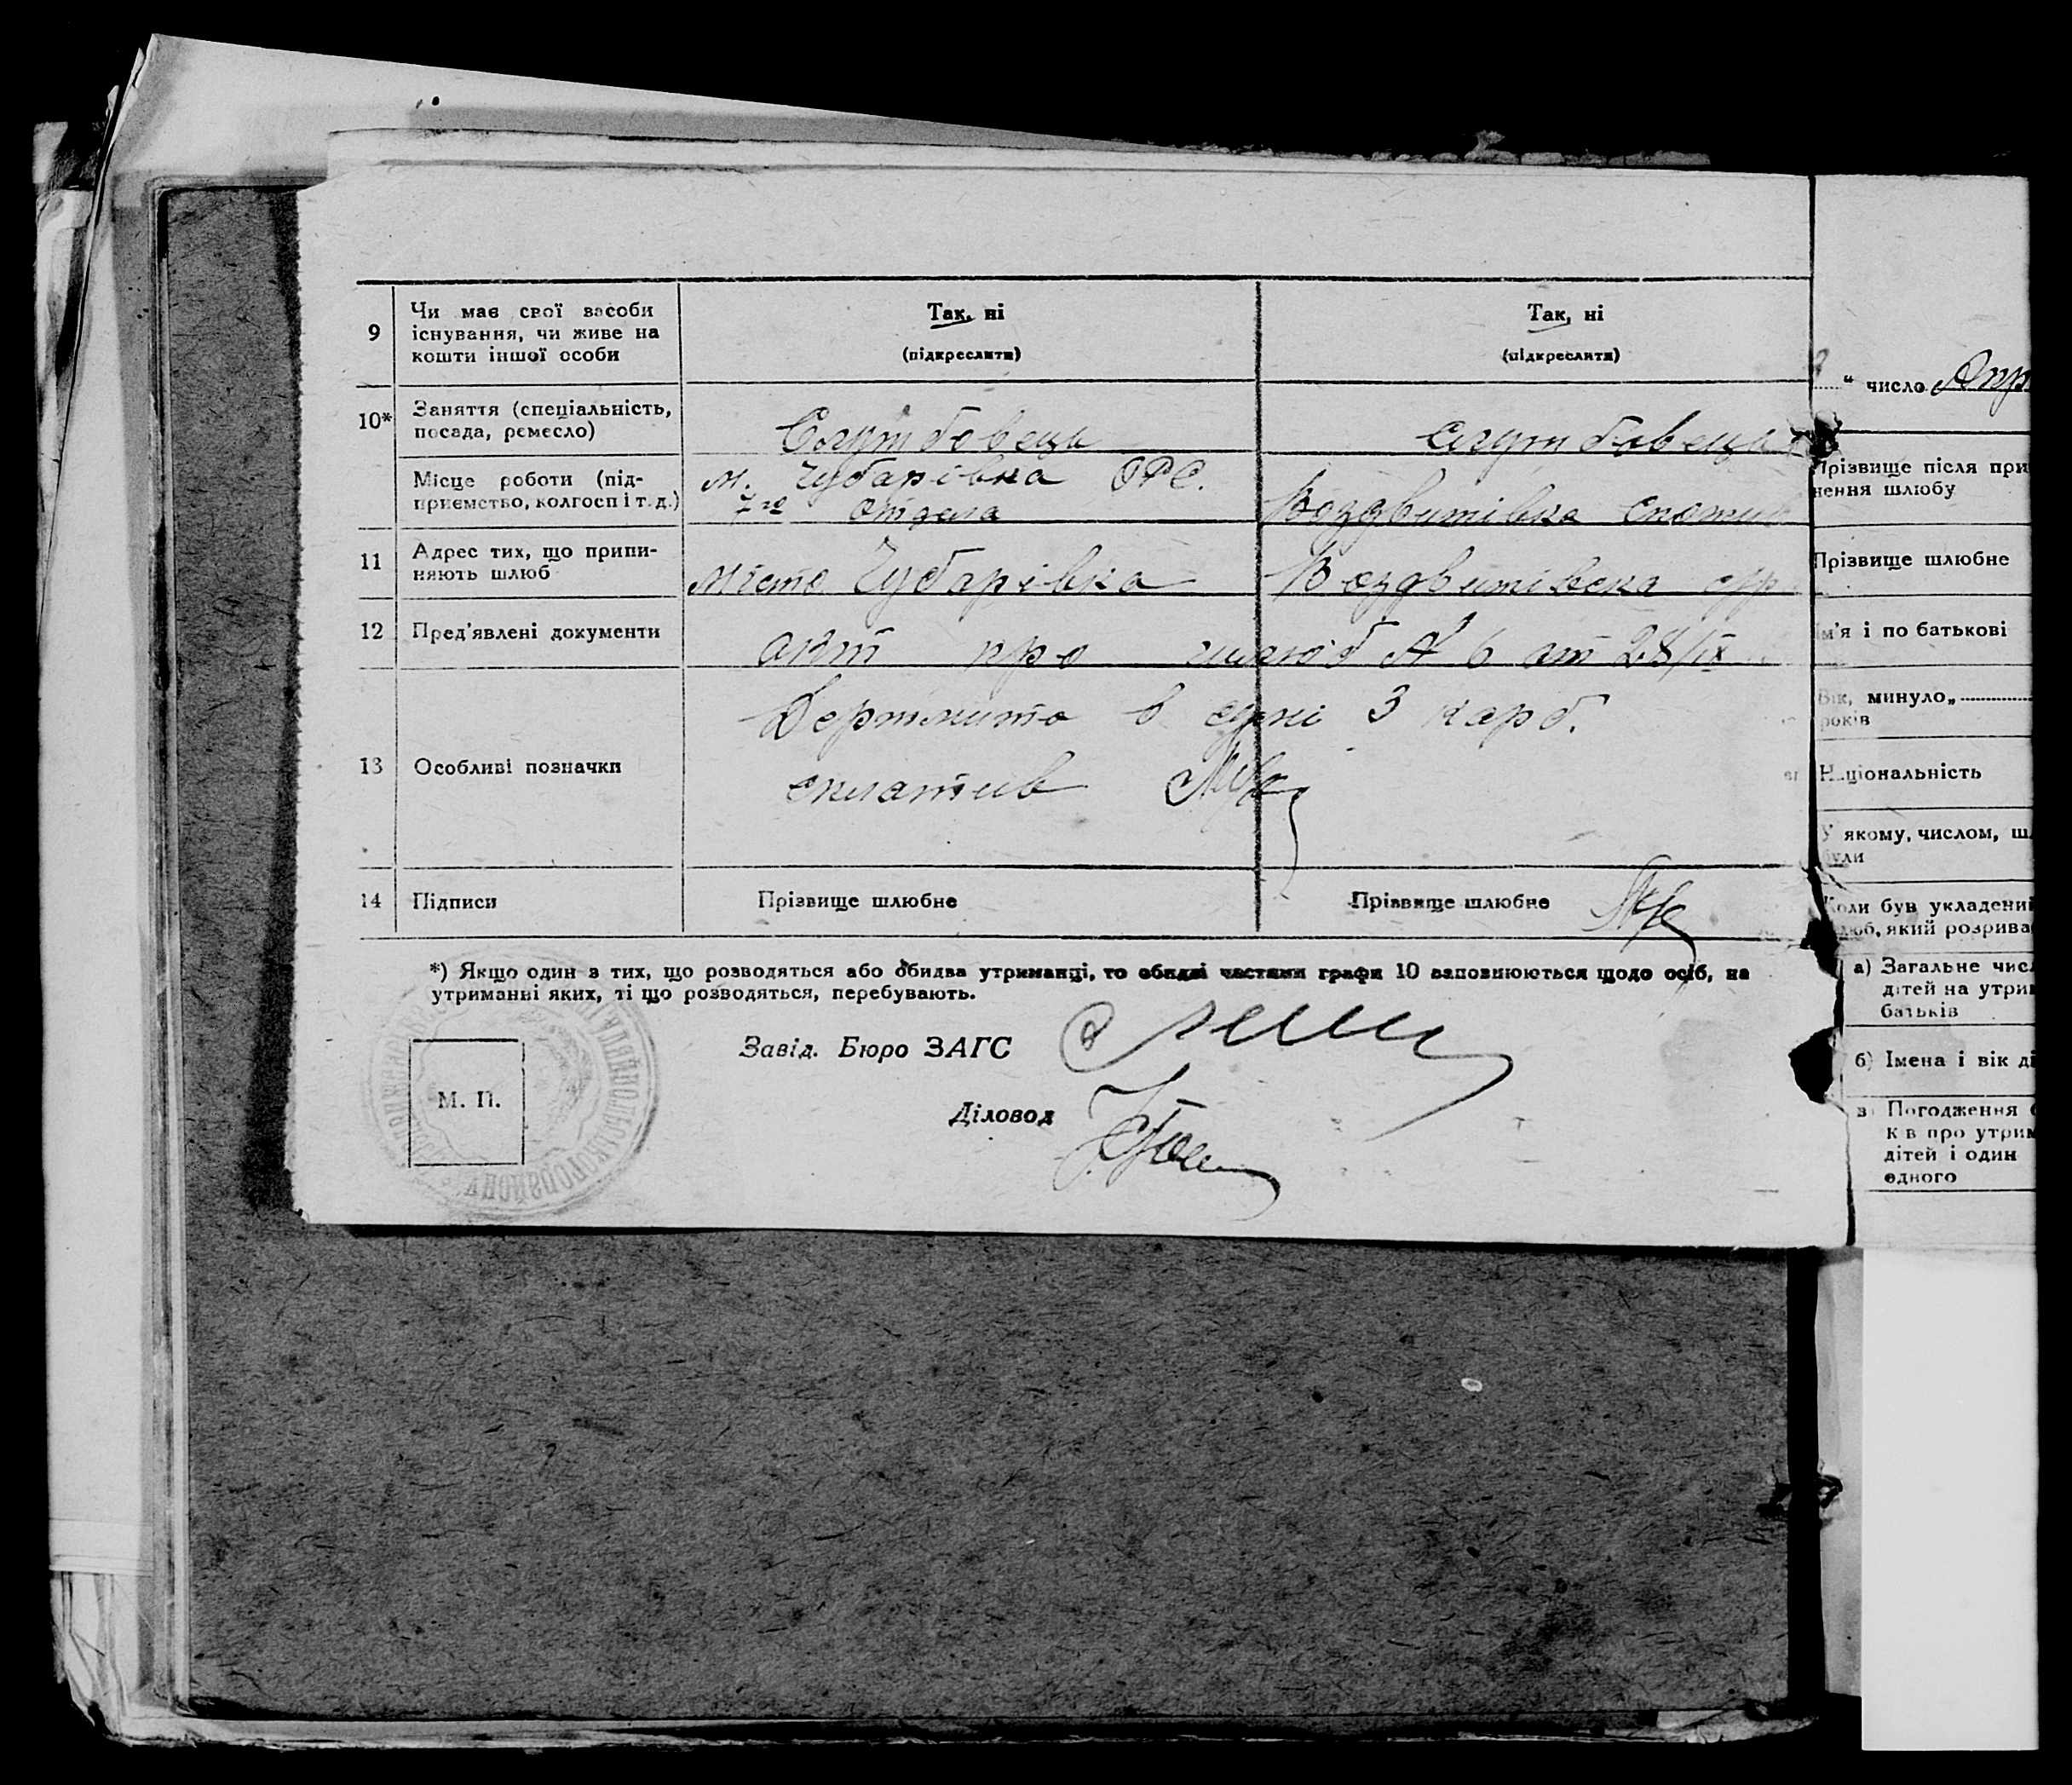 9 Чи має свої засоби
існування, чи живе на
кошти іншої особи
Так, ні
(підкреслити)
Так, ні
(підкреслити)
10* Заняття (спеціальність,
посада, ремесло)
Місце роботи (під-
приємство, колгосп і т. д.)
м. Чубарівка ОРС.
7го отдела
Воздвитівка
11 Адрес тих, що припи-
няють шлюб
місто Чубарівка
12 Пред'явлені документи
акт про шлюб № 6 от 28/IX
13 Особливі позначки
в сумі 3 карб.
сплатив
14 Підписи
Прізвище шлюбне
Прізвище шлюбне
*) Якщо один з тих, що розводяться або обидва утриманці, то обидві частини графи 10 заповнюються щодо осіб, на
утриманні яких, ті що розводяться, перебувають.
Завід. Бюро ЗАГС
М. П.
Діловод
" число
Прізвище після при
нення шлюбу
Прізвище шлюбне
Ім'я і по батькові
Вік, минуло „
років
Національність
У якому, числом, ш
були
Коли був укладений
шлюб, який розрива
а) Загальне чис
дітей на утрим
батьків
б) Імена і вік ді
в) Погодження
к в про утрим
дітей і один
одного